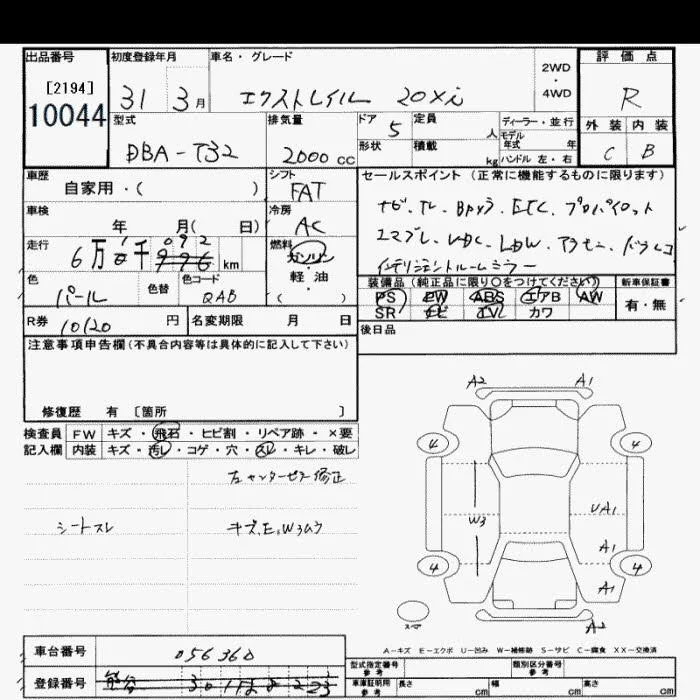 出品番号
[2194]
10044
初度登録年月
31 3月
車名・グレード
エクストレイル 20Xi
2WD
・
4WD
評価点
R
外装 内装
C B
型式
DBA-T32
排気量
2000 cc
ドア 5
定員 人
形状
積載 kg
ディーラー・並行
モデル年式 年
ハンドル 左・右
車歴
自家用・( )
シフト
FAT
車検
年 月( 日)
冷房
AC
走行
6万 千 092 km
燃料
ガソリン
軽・油
( )
色
パール
色替
色コード
QAB
R券 10120 円
名変期限 月 日
セールスポイント(正常に機能するものに限ります)
ナビ、TV、Bカメラ、ETC、プロパイロット
エマブレ、VDC、LDW、アラモニ、ドラレコ
インテリジェントルームミラー
装備品(純正品に限り○をつけてください)
PS PW ABS エアB AW
SR ナビ TV カワ
新車保証書
有・無
後日品
注意事項申告欄(不具合内容等は具体的に記入して下さい)
修復歴 有 [箇所 ]
検査員 FW キズ・飛石・ヒビ割・リペア跡・×要
記入欄 内装 キズ・汚レ・コゲ・穴・スレ・キレ・破レ
左センターピラー修正
シートスレ
キズ、E、W3ムラ
A2 A1
4 4
W3
UA1
A1
4 4
A1
スペア
A2
A-キズ E-エクボ U-凹み W-補修跡 S-サビ C-腐食 XX-交換済
車台番号 056360
登録番号
型式指定番号 参考
類別区分番号 参考
車庫証明用 参考
長さ cm
幅 cm
高さ cm